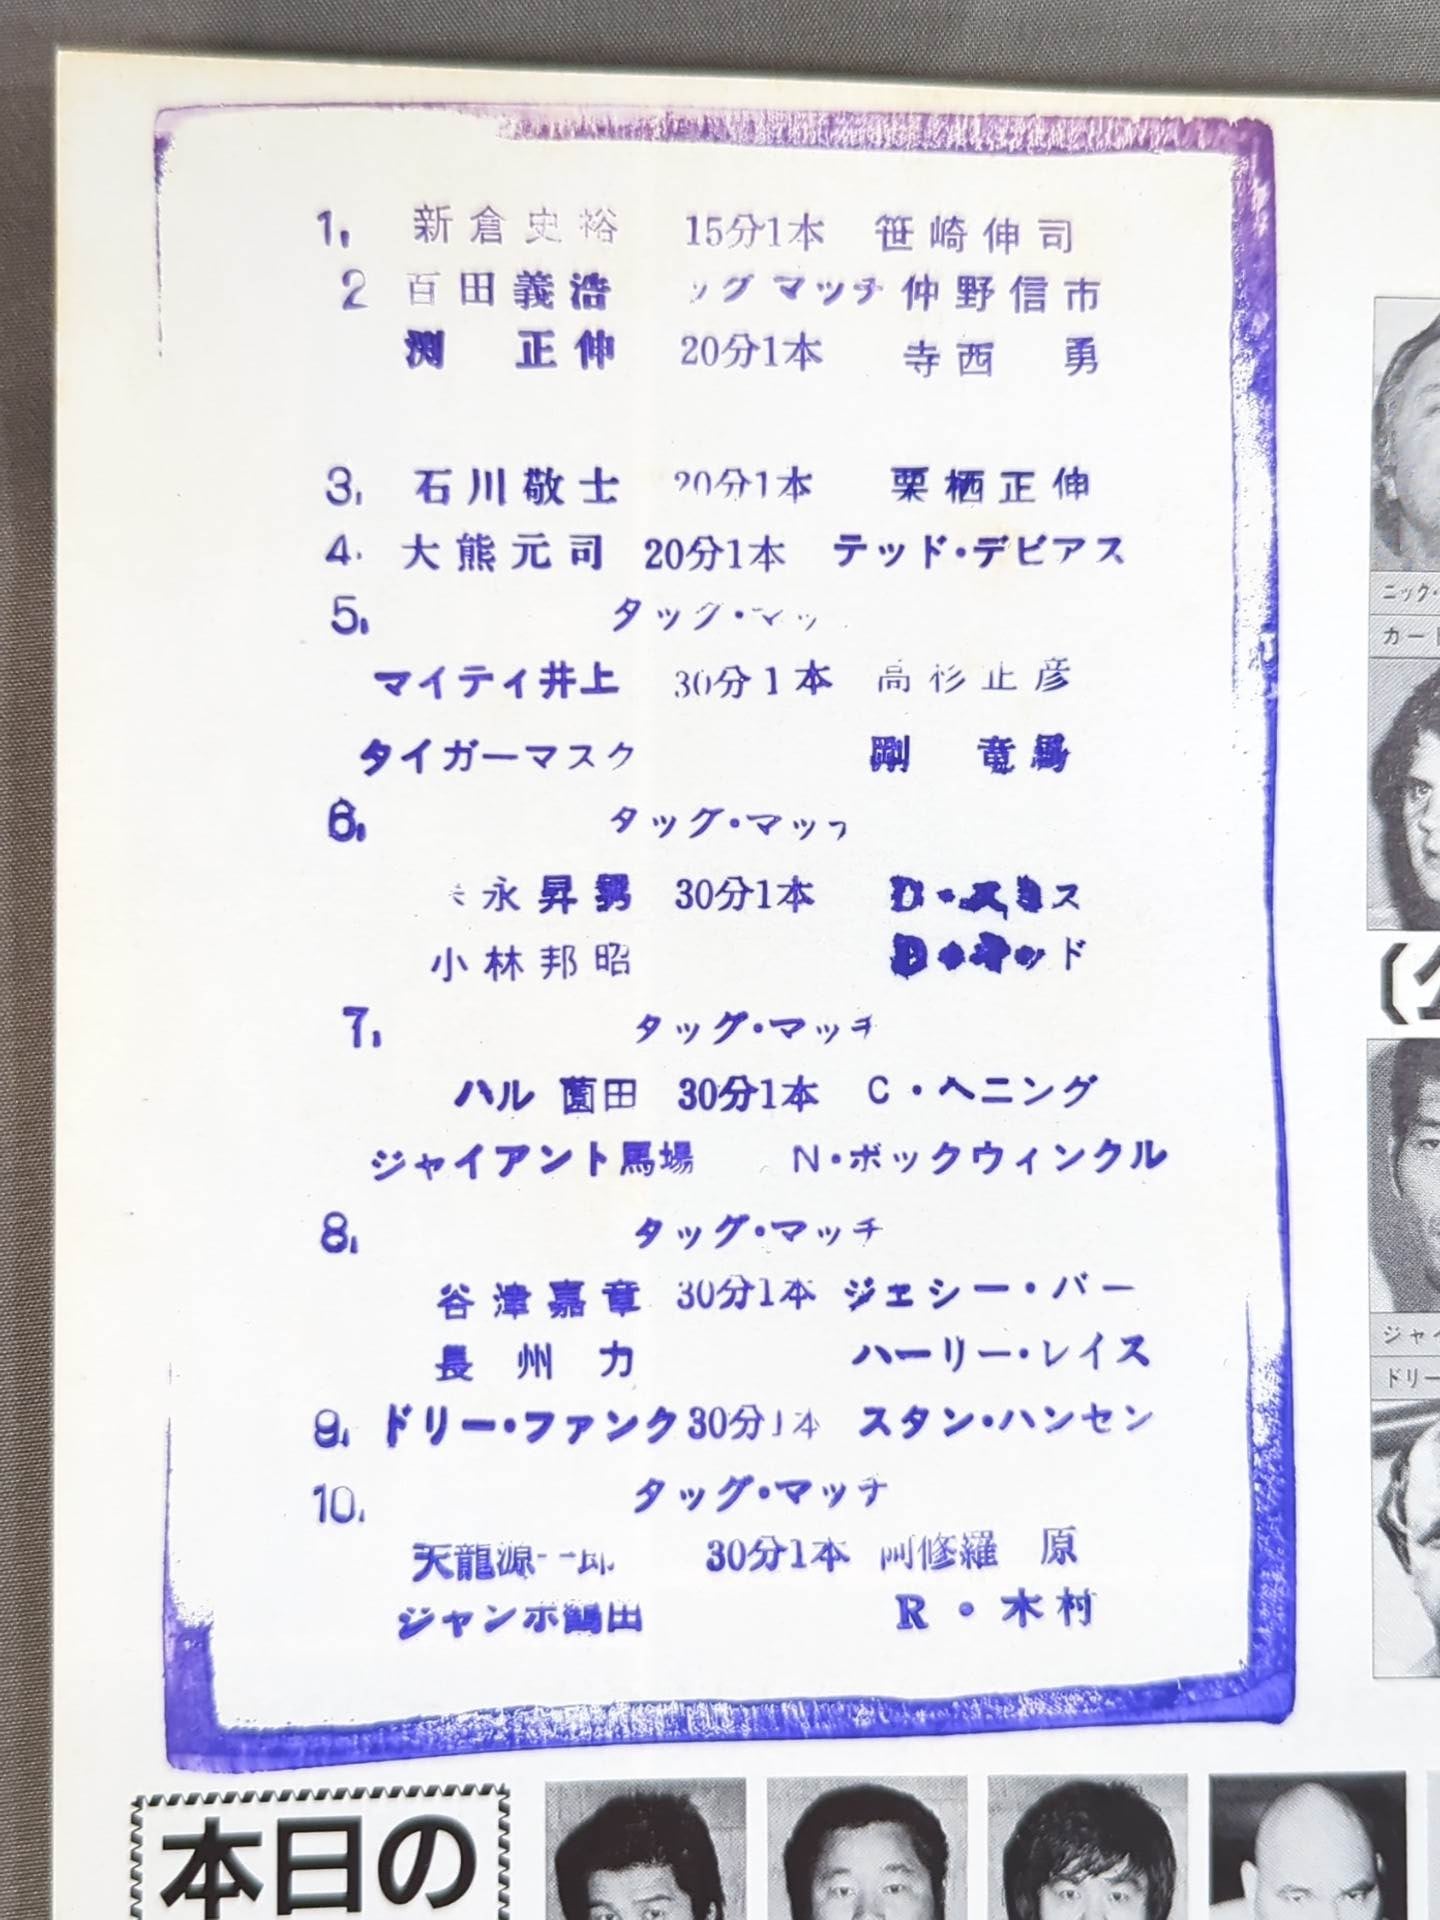 1. 新倉史裕 15分1本 笹崎伸司
2 百田義浩 ッグマッチ 仲野信市
渕 正伸 20分1本 寺西 勇
3. 石川敬士 20分1本 栗栖正伸
4. 大熊元司 20分1本 テッド・デビアス
5. タッグ・マッ
マイティ井上 30分1本 高杉正彦
タイガーマスク 剛 竜馬
6. タッグ・マッ
永昇男 30分1本 D・スミス
小林邦昭 D・キッド
7. タッグ・マッチ
ハル薗田 30分1本 C・ヘニング
ジャイアント馬場 N・ボックウィンクル
8. タッグ・マッチ
谷津嘉章 30分1本 ジェシー・バー
長州力 ハーリー・レイス
9. ドリー・ファンク 30分1本 スタン・ハンセン
10. タッグ・マッチ
天龍源一郎 30分1本 阿修羅 原
ジャンボ鶴田 R・木村
本日の
ニック・
カート
ジャイ
ドリー